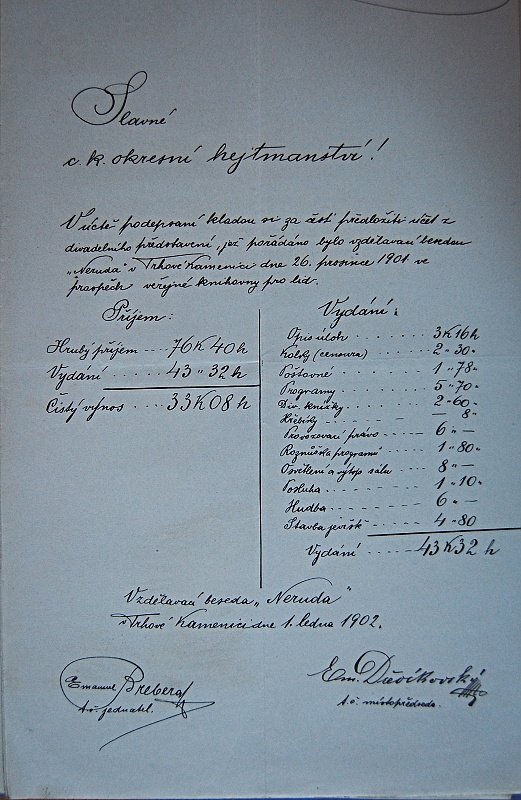 Slavné
c. k. okresní hejtmanství!
V úctě podepsaní kladou si za čest předložiti účet z
divadelního představení, jež pořádáno bylo vzdělavací besedou
„Neruda" v Trhové Kamenici dne 26. prosince 1901 ve
prospěch veřejné knihovny pro lid.
Příjem:
Hrubý příjem --- 76 K 40 h
Vydání ..... 43 " 32 h
Čistý výnos ..... 33 K 08 h
Vydání:
Opis úloh ..... 3 K 16 h
Kolky (censura) ..... 2 " 30 "
Poštovné ..... 1 " 78 "
Programy ..... 5 " 70 "
Div. knížky ..... 2 " 60 "
Hřebíky ..... — 8 "
Provozovací právo .. 6 " —
Roznůška programů 1 " 80 "
Osvětlení a výtop sálu .... 8 " —
Posluha ..... 1 " 10 "
Hudba ..... 6 " —
Stavba jevišt. .... 4 " 80
Vydání ..... 43 K 32 h
Vzdělavací beseda „Neruda"
v Trhové Kamenici dne 1. ledna 1902.
Emanuel
t. č. jednatel.
Em.
t. č. místopředseda.